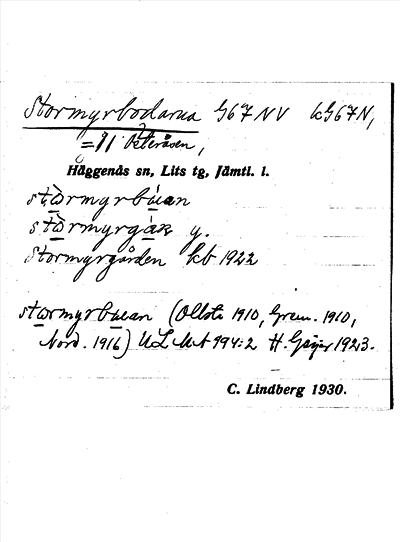 Stormyrbodarna G67NV kG67N,
= 91 Österåsen,
Häggenås sn, Lits tg, Jämtl. l.
stòrmyrbùan
stòrmyrgàɹꞩ y.
Stormyrgården kb 1922
stormyrbuean (Ollsta 1910, Grenn. 1910,
Nord. 1916) ULMA 994:2 H. Geijer 1923.
C. Lindberg 1930.